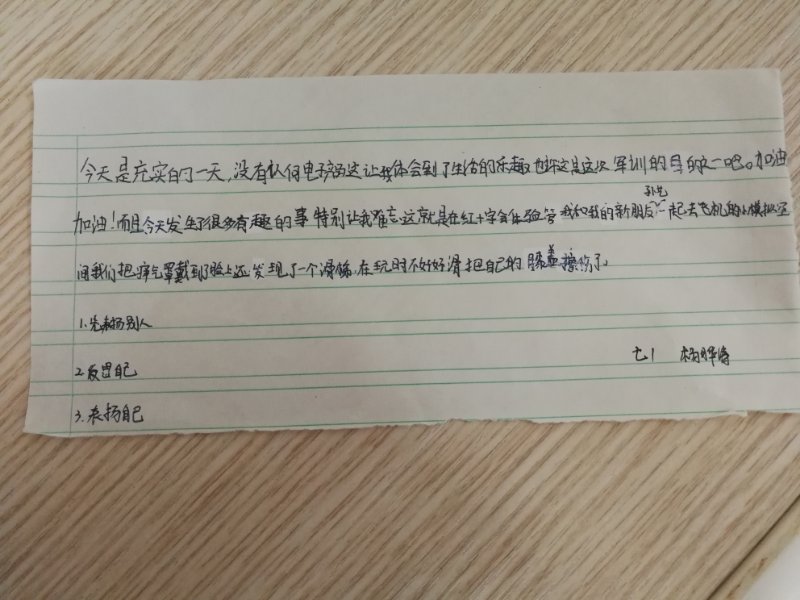 今天是充实的一天,没有认何电子产品这让我体会到了生活的乐趣也许这是这次军训的目的之一吧。加油
加油!而且今天发生了很多有趣的事特别让我难忘这就是在红十字会体验馆我和我的新朋友一起去飞机的小模拟空
间我们把氧气罩戴到了脸上还发现了一个滑梯.在玩时不好好滑把自己的膝盖擦伤了。
1.先表扬别人
2.反思自己
七1 杨
3.表扬自己